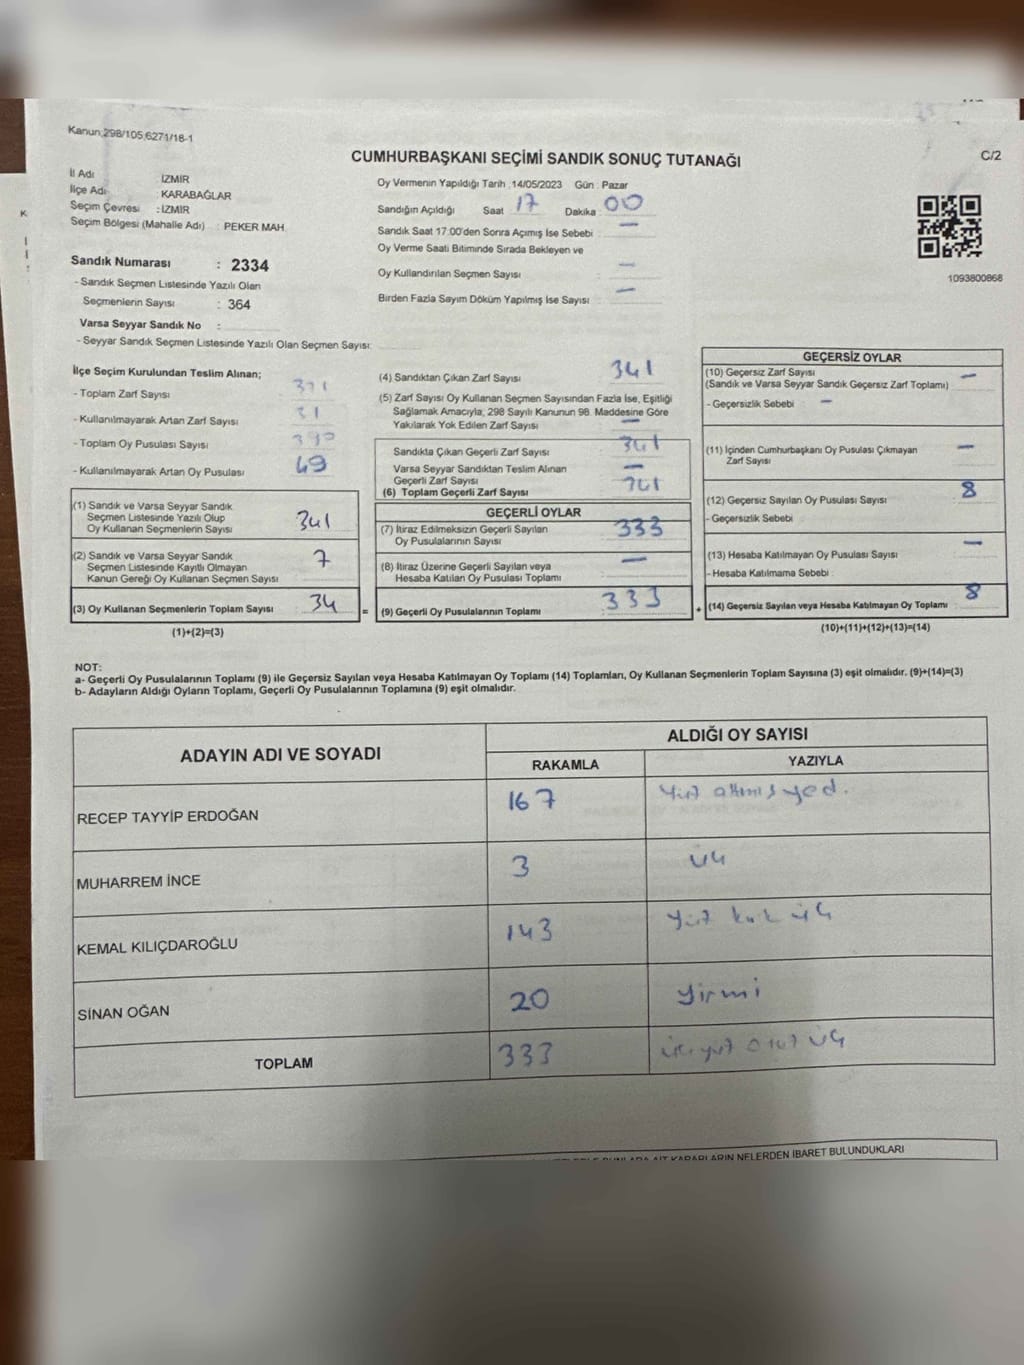 Kanun:298/105,6271/18-1
CUMHURBAŞKANI SEÇİMİ SANDIK SONUÇ TUTANAĞI
C/2
İl Adı : İZMİR
İlçe Adı : KARABAĞLAR
Seçim Çevresi : İZMİR
Seçim Bölgesi (Mahalle Adı) : PEKER MAH
Sandık Numarası : 2334
- Sandık Seçmen Listesinde Yazılı Olan
Seçmenlerin Sayısı : 364
Varsa Seyyar Sandık No :
- Seyyar Sandık Seçmen Listesinde Yazılı Olan Seçmen Sayısı:
Oy Vermenin Yapıldığı Tarih :14/05/2023 Gün : Pazar
Sandığın Açıldığı Saat 17 Dakika : 00
Sandık Saat 17:00'den Sonra Açımış İse Sebebi : —
Oy Verme Saati Bitiminde Sırada Bekleyen ve
Oy Kullandırılan Seçmen Sayısı : —
Birden Fazla Sayım Döküm Yapılmış İse Sayısı : —
1093800868
İlçe Seçim Kurulundan Teslim Alınan;
- Toplam Zarf Sayısı
- Kullanılmayarak Artan Zarf Sayısı : 31
- Toplam Oy Pusulası Sayısı
- Kullanılmayarak Artan Oy Pusulası : 49
(1) Sandık ve Varsa Seyyar Sandık
Seçmen Listesinde Yazılı Olup
Oy Kullanan Seçmenlerin Sayısı : 341
(2) Sandık ve Varsa Seyyar Sandık
Seçmen Listesinde Kayıtlı Olmayan
Kanun Gereği Oy Kullanan Seçmen Sayısı : 7
(3) Oy Kullanan Seçmenlerin Toplam Sayısı : 34 =
(1)+(2)=(3)
(4) Sandıktan Çıkan Zarf Sayısı : 341
(5) Zarf Sayısı Oy Kullanan Seçmen Sayısından Fazla İse, Eşitliği
Sağlamak Amacıyla, 298 Sayılı Kanunun 98. Maddesine Göre
Yakılarak Yok Edilen Zarf Sayısı : —
Sandıkta Çıkan Geçerli Zarf Sayısı : 341
Varsa Seyyar Sandıktan Teslim Alınan
Geçerli Zarf Sayısı : —
(6) Toplam Geçerli Zarf Sayısı
GEÇERLİ OYLAR
(7) İtiraz Edilmeksizin Geçerli Sayılan
Oy Pusulalarının Sayısı : 333
(8) İtiraz Üzerine Geçerli Sayılan veya
Hesaba Katılan Oy Pusulası Toplamı : —
(9) Geçerli Oy Pusulalarının Toplamı : 333 +
GEÇERSİZ OYLAR
(10) Geçersiz Zarf Sayısı : —
(Sandık ve Varsa Seyyar Sandık Geçersiz Zarf Toplamı)
- Geçersizlik Sebebi : —
(11) İçinden Cumhurbaşkanı Oy Pusulası Çıkmayan
Zarf Sayısı : —
(12) Geçersiz Sayılan Oy Pusulası Sayısı : 8
- Geçersizlik Sebebi
(13) Hesaba Katılmayan Oy Pusulası Sayısı : —
- Hesaba Katılmama Sebebi :
(14) Geçersiz Sayılan veya Hesaba Katılmayan Oy Toplamı : 8
(10)+(11)+(12)+(13)=(14)
NOT:
a- Geçerli Oy Pusulalarının Toplamı (9) ile Geçersiz Sayılan veya Hesaba Katılmayan Oy Toplamı (14) Toplamları, Oy Kullanan Seçmenlerin Toplam Sayısına (3) eşit olmalıdır. (9)+(14)=(3)
b- Adayların Aldığı Oyların Toplamı, Geçerli Oy Pusulalarının Toplamına (9) eşit olmalıdır.
ADAYIN ADI VE SOYADI
ALDIĞI OY SAYISI
RAKAMLA YAZIYLA
RECEP TAYYİP ERDOĞAN 167 yüz altmış yed.
MUHARREM İNCE 3 üç
KEMAL KILIÇDAROĞLU 143 yüz kırk üç
SİNAN OĞAN 20 yirmi
TOPLAM 333 üçyüz otuz üç
KARARLARIN NELERDEN İBARET BULUNDUKLARI